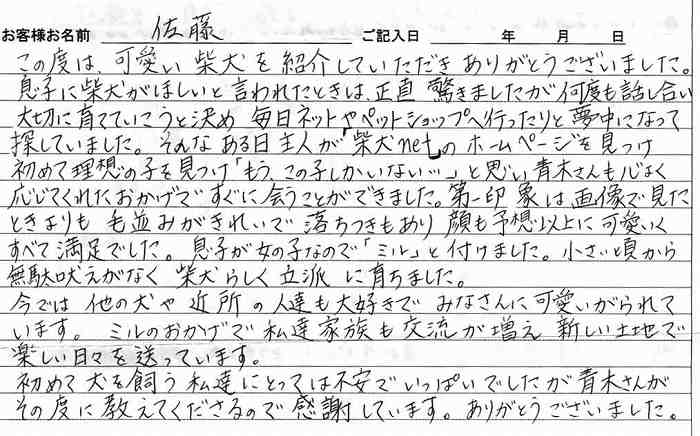 お客様お名前 佐藤 ご記入日 年 月 日
この度は、可愛い柴犬を紹介していただきありがとうございました。
息子に柴犬がほしいと言われたときは、正直驚きましたが何度も話し合い
大切に育てていこうと決め毎日ネットやペットショップへ行ったりと夢中になって
探していました。そんなある日主人が「柴犬net」のホームページを見つけ
初めて理想の子を見つけ「もう、この子しかいない…」と思い青木さんも心よく
応じてくれたおかげですぐに会うことができました。第一印象は画像で見た
ときよりも毛並みがきれいで落ちつきもあり顔も予想以上に可愛いく
すべて満足でした。息子が女の子なので「ミル」と付けました。小さい頃から
無駄吠えがなく柴犬らしく立派に育ちました。
今では他の犬や近所の人達も大好きでみなさんに可愛いがられて
います。ミルのおかげで私達家族も交流が増え新しい土地で
楽しい日々を送っています。
初めて犬を飼う私達にとっては不安でいっぱいでしたが青木さんが
その度に教えてくださるので感謝しています。ありがとうございました。